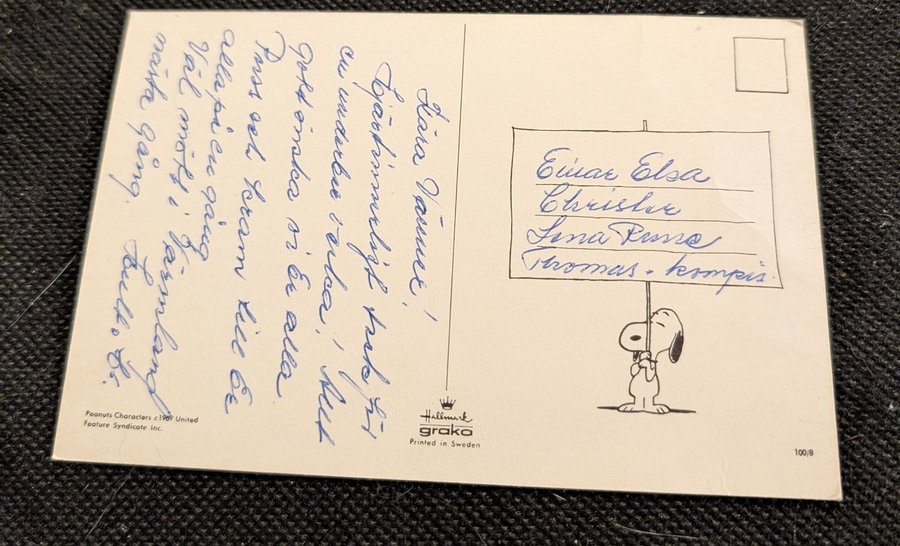 Kära Vänner!
Hjärtinnerligt tack för
en underbar vecka! Allt
gott önska vi Er alla
Puss och kram till Er
alla på en gång
Väl mött i Värmland
nästa gång.
Einar Elsa
Christer
Lena Rune
Thomas + kompis.
Peanuts Characters c1969 United
Feature Syndicate Inc.
Hallmark
grako
Printed in Sweden
100/8